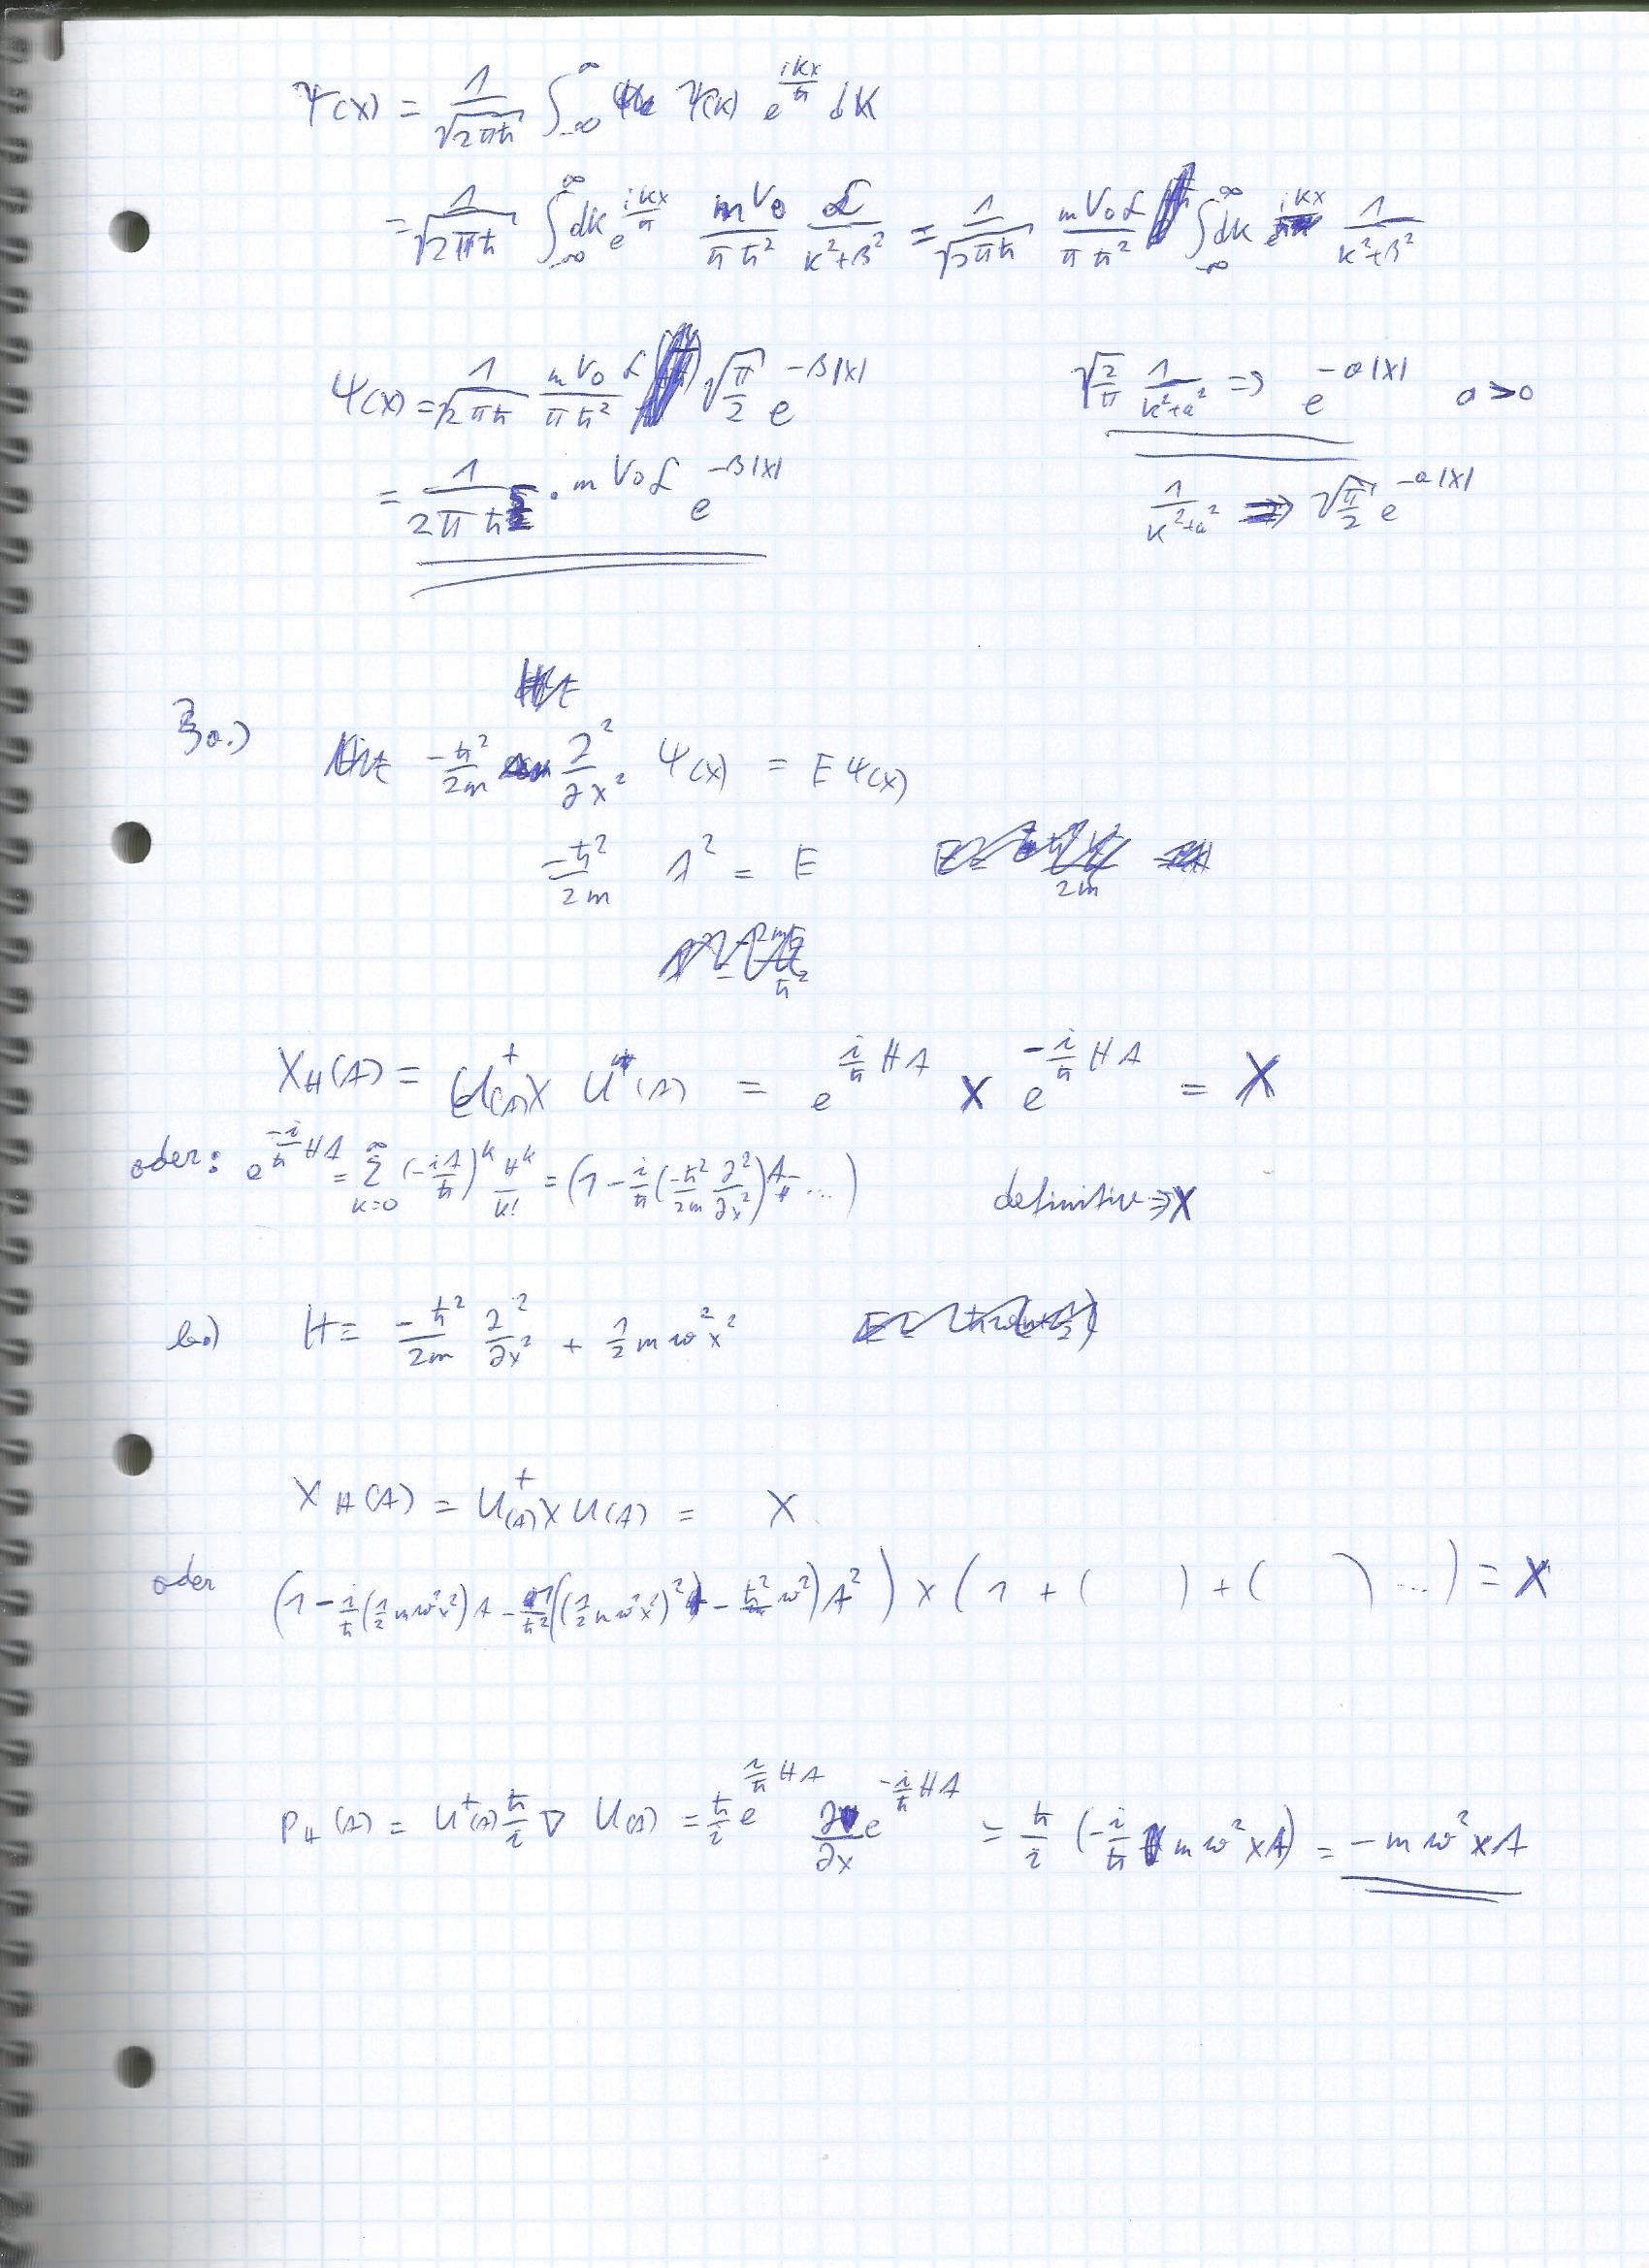 Ψ(x) = 1/√(2πħ) ∫_{-∞}^{∞} Ψ(k) e^{ikx/ħ} dk
= 1/√(2πħ) ∫_{-∞}^{∞} dk e^{ikx/ħ} mV₀/(πħ²) α/(k²+β²) = 1/√(2πħ) mV₀α/(πħ²) ∫_{-∞}^{∞} dk e^{ikx} 1/(k²+β²)
Ψ(x) = 1/√(2πħ) mV₀α/(πħ²) √(π/2) e^{-β|x|}
√(2/π) 1/(k²+a²) => e^{-a|x|} a>0
= 1/(2πħ) · mV₀α e^{-β|x|}
1/(k²+a²) => √(π/2) e^{-a|x|}
3a.) -ħ²/2m ∂²/∂x² Ψ(x) = EΨ(x)
-ħ²/2m λ² = E
X_H(t) = U⁺(t) X U(t) = e^{i/ħ Ht} X e^{-i/ħ Ht} = X
oder: e^{-i/ħ Ht} = ∑_{k=0}^{∞} (-it/ħ)^k H^k/k! = (1 - i/ħ(-ħ²/2m ∂²/∂x²)t - ...) definitiv => X
b.) H = -ħ²/2m ∂²/∂x² + 1/2 mω²x²
X_H(t) = U⁺(t) X U(t) = X
oder (1 - i/ħ(1/2 mω²x²)t - 1/ħ²((1/2 mω²x²)² - ħ²/2 ω²)t²) x (1 + ( ) + ( ) ...) = X
P_H(t) = U⁺(t) ħ/i ∇ U(t) = ħ/i e^{i/ħ Ht} ∂/∂x e^{-i/ħ Ht} = ħ/i (-i/ħ mω²xt) = -mω²xt